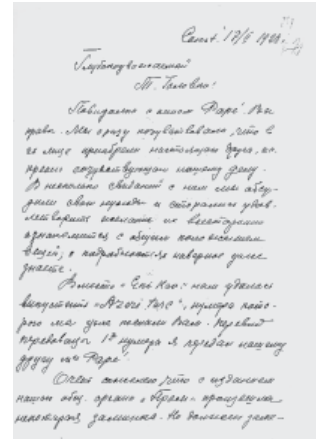 17/II 1928
Глубокоуважаемый
Повидались с нашим Фаре. Вы
правы. Мы сразу почувствовали, что в
его лице приобрели настоящего друга, ис-
кренно сочувствующего нашему делу.
В несколько свиданий с ним мы обсу-
дили свои нужды и старались удов-
летворить желания его всесторонне
ознакомиться с общим положением
вещей; о подробностях наверное уже
знаете.
Вместо нам удалось
выпустить номера кото-
рого мы уже послали Вам. Перевод
передовицы 1го номера я передал нашему
другу Фаре.
Очень что с изданием
нашего общ. органа произошла
некоторая заминка. Но должен заме-